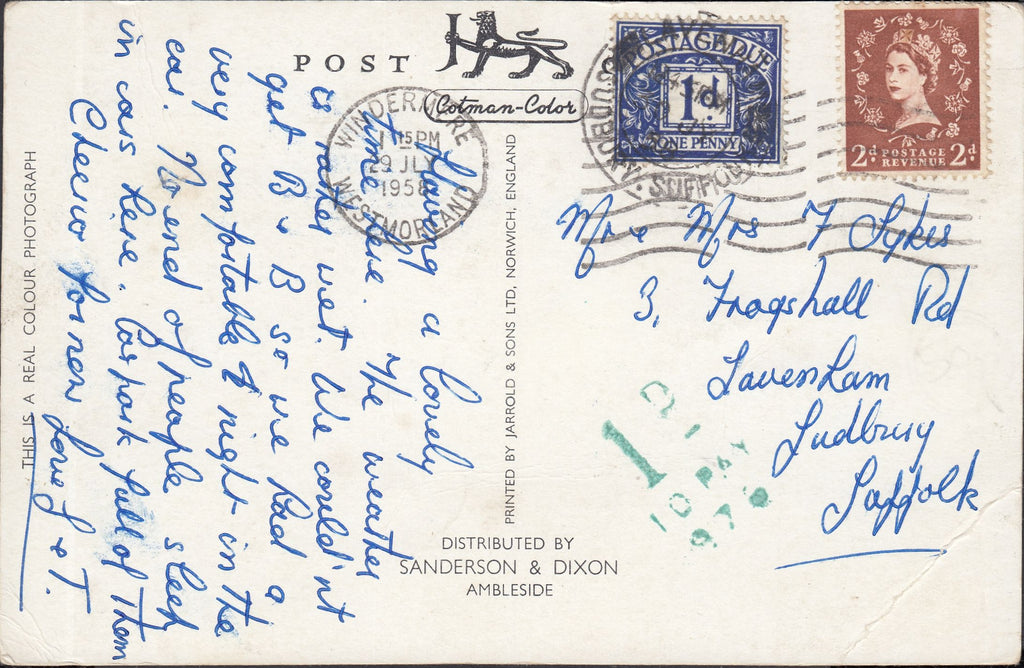 POST
Cotman-Color
WINDERMERE
1 15PM
29 JLY
1958
WESTMORLAND
POSTAGE DUE
1d.
ONE PENNY
SUDBURY. SUFFOLK
2d POSTAGE 2d
REVENUE
Having a lovely
time here. The weather
is rather wet. We could'nt
get B & B so we had a
very comfortable night in the
car. No end of people sleep
in cars here. Car park full of them
Cheerio for now Love J & T.
Mr & Mrs F Sykes
3, Frogshall Rd
Lavenham
Sudbury
Suffolk
1D
TO PAY
976
THIS IS A REAL COLOUR PHOTOGRAPH
PRINTED BY JARROLD & SONS LTD, NORWICH, ENGLAND
DISTRIBUTED BY
SANDERSON & DIXON
AMBLESIDE